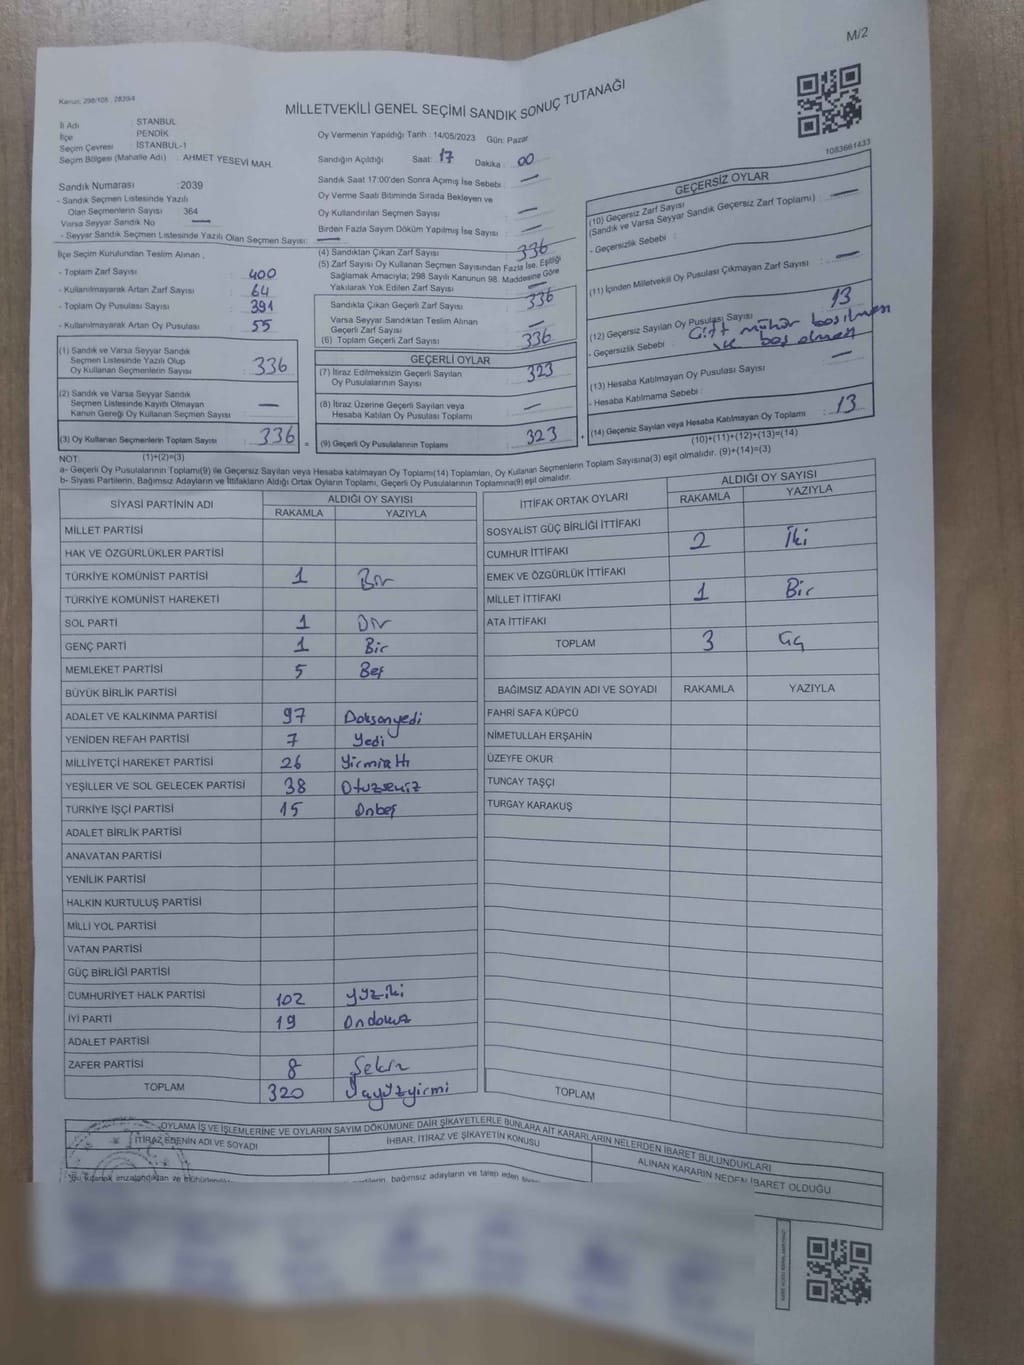 M/2
Kanun: 298/105 , 2839/4
MİLLETVEKİLİ GENEL SEÇİMİ SANDIK SONUÇ TUTANAĞI
İl Adı : STANBUL
İlçe : PENDİK
Seçim Çevresi : İSTANBUL-1
Seçim Bölgesi (Mahalle Adı) : AHMET YESEVİ MAH.
Sandık Numarası : 2039
- Sandık Seçmen Listesinde Yazılı
Olan Seçmenlerin Sayısı : 364
Varsa Seyyar Sandık No : —
- Seyyar Sandık Seçmen Listesinde Yazılı Olan Seçmen Sayısı : —
İlçe Seçim Kurulundan Teslim Alınan ,
- Toplam Zarf Sayısı : 400
- Kullanılmayarak Artan Zarf Sayısı : 64
- Toplam Oy Pusulası Sayısı : 391
- Kullanılmayarak Artan Oy Pusulası : 55
(1) Sandık ve Varsa Seyyar Sandık
Seçmen Listesinde Yazılı Olup
Oy Kullanan Seçmenlerin Sayısı : 336
(2) Sandık ve Varsa Seyyar Sandık
Seçmen Listesinde Kayıtlı Olmayan
Kanun Gereği Oy Kullanan Seçmen Sayısı : —
(3) Oy Kullanan Seçmenlerin Toplam Sayısı : 336
Oy Vermenin Yapıldığı Tarih : 14/05/2023 Gün: Pazar
Sandığın Açıldığı Saat: 17 Dakika : 00
Sandık Saat 17:00'den Sonra Açımış İse Sebebi : —
Oy Verme Saati Bitiminde Sırada Bekleyen ve
Oy Kullandırılan Seçmen Sayısı : —
Birden Fazla Sayım Döküm Yapılmış İse Sayısı : —
(4) Sandıktan Çıkan Zarf Sayısı : 336
(5) Zarf Sayısı Oy Kullanan Seçmen Sayısından Fazla İse, Eşitliği
Sağlamak Amacıyla; 298 Sayılı Kanunun 98. Maddesine Göre
Yakılarak Yok Edilen Zarf Sayısı : —
Sandıkta Çıkan Geçerli Zarf Sayısı : 336
Varsa Seyyar Sandıktan Teslim Alınan
Geçerli Zarf Sayısı : —
(6) Toplam Geçerli Zarf Sayısı : 336
GEÇERLİ OYLAR
(7) İtiraz Edilmeksizin Geçerli Sayılan
Oy Pusulalarının Sayısı : 323
(8) İtiraz Üzerine Geçerli Sayılan veya
Hesaba Katılan Oy Pusulası Toplamı : —
= (9) Geçerli Oy Pusulalarının Toplamı : 323
1083661433
GEÇERSİZ OYLAR
(10) Geçersiz Zarf Sayısı
(Sandık ve Varsa Seyyar Sandık Geçersiz Zarf Toplamı) : —
- Geçersizlik Sebebi :
(11) İçinden Milletvekili Oy Pusulası Çıkmayan Zarf Sayısı : —
(12) Geçersiz Sayılan Oy Pusulası Sayısı : 13
- Geçersizlik Sebebi : Çift mühür basılması
ve boş olması
(13) Hesaba Katılmayan Oy Pusulası Sayısı : —
- Hesaba Katılmama Sebebi :
+ (14) Geçersiz Sayılan veya Hesaba Katılmayan Oy Toplamı : 13
NOT: (1)+(2)=(3) (10)+(11)+(12)+(13)=(14)
a- Geçerli Oy Pusulalarının Toplamı(9) ile Geçersiz Sayılan veya Hesaba katılmayan Oy Toplamı(14) Toplamları, Oy Kullanan Seçmenlerin Toplam Sayısına(3) eşit olmalıdır. (9)+(14)=(3)
b- Siyasi Partilerin, Bağımsız Adayların ve İttifakların Aldığı Ortak Oyların Toplamı, Geçerli Oy Pusulalarının Toplamına(9) eşit olmalıdır.
SİYASİ PARTİNİN ADI ALDIĞI OY SAYISI
RAKAMLA YAZIYLA
MİLLET PARTİSİ
HAK VE ÖZGÜRLÜKLER PARTİSİ
TÜRKİYE KOMÜNİST PARTİSİ 1 Bir
TÜRKİYE KOMÜNİST HAREKETİ
SOL PARTİ 1 Bir
GENÇ PARTİ 1 Bir
MEMLEKET PARTİSİ 5 Beş
BÜYÜK BİRLİK PARTİSİ
ADALET VE KALKINMA PARTİSİ 97 Doksanyedi
YENİDEN REFAH PARTİSİ 7 Yedi
MİLLİYETÇİ HAREKET PARTİSİ 26 Yirmialtı
YEŞİLLER VE SOL GELECEK PARTİSİ 38 Otuzsekiz
TÜRKİYE İŞÇİ PARTİSİ 15 Onbeş
ADALET BİRLİK PARTİSİ
ANAVATAN PARTİSİ
YENİLİK PARTİSİ
HALKIN KURTULUŞ PARTİSİ
MİLLİ YOL PARTİSİ
VATAN PARTİSİ
GÜÇ BİRLİĞİ PARTİSİ
CUMHURİYET HALK PARTİSİ 102 Yüziki
İYİ PARTİ 19 Ondokuz
ADALET PARTİSİ
ZAFER PARTİSİ 8 Sekiz
TOPLAM 320 Üçyüzyirmi
İTTİFAK ORTAK OYLARI ALDIĞI OY SAYISI
RAKAMLA YAZIYLA
SOSYALİST GÜÇ BİRLİĞİ İTTİFAKI
CUMHUR İTTİFAKI 2 İki
EMEK VE ÖZGÜRLÜK İTTİFAKI
MİLLET İTTİFAKI 1 Bir
ATA İTTİFAKI
TOPLAM 3 Üç
BAĞIMSIZ ADAYIN ADI VE SOYADI RAKAMLA YAZIYLA
FAHRİ SAFA KÜPCÜ
NİMETULLAH ERŞAHİN
ÜZEYFE OKUR
TUNCAY TAŞÇI
TURGAY KARAKUŞ
TOPLAM
OYLAMA İŞ VE İŞLEMLERİNE VE OYLARIN SAYIM DÖKÜMÜNE DAİR ŞİKAYETLERLE BUNLARA AİT KARARLARIN NELERDEN İBARET BULUNDUKLARI
İTİRAZ EDENİN ADI VE SOYADI İHBAR, İTİRAZ VE ŞİKAYETİN KONUSU ALINAN KARARIN NEDEN İBARET OLDUĞU
bağımsız adayların ve talep eden